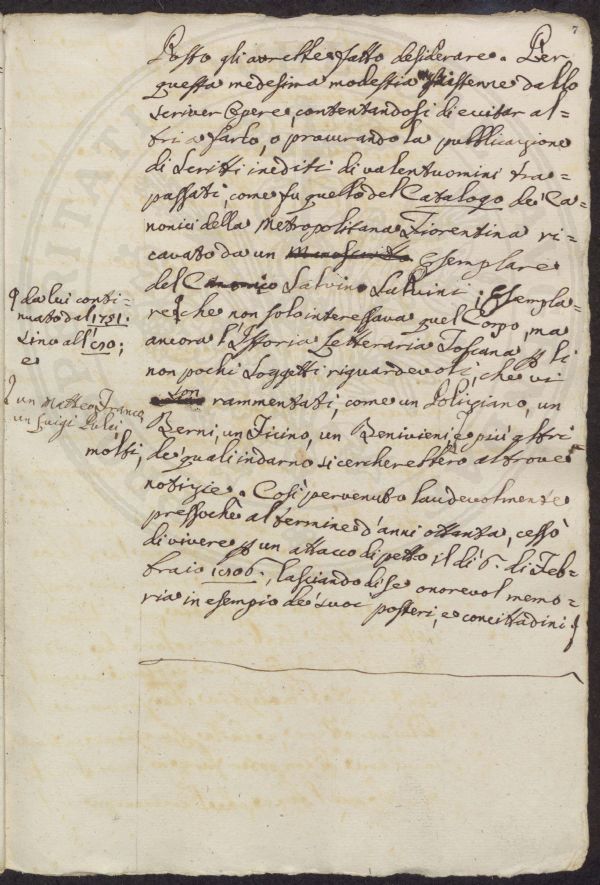 7
Posto gli avrebbe fatto desiderare. Per
questa medesima modestia si astenne dallo
scriver Opere, contentandosi di evitar al-
tri a farlo, o procurando la pubblicazione
di scritti inediti di valentuomini tra-
passati, come fu quello del Catalogo de' Ca-
nonici della Metropolitana Fiorentina ri-
cavato da un Manoscritto Esemplare
del Canonico Salvino Salvini; Esempla-
re che non solo interessava quel Corpo, ma
ancora l'Istoria Letteraria Toscana p li
non pochi Soggetti riguardevoli, che vi
son rammentati, come un Poliziano, un
Berni, un Ficino, un Benivieni, e più altri
de' quali indarno si cercherebbero altrove
notizie. Così pervenuto laudevolmente
pressochè al termine d'anni ottanta, cessò
di vivere p un attacco di petto il dì 6. di Feb-
braio 1806, lasciando di se onorevol memo-
ria in esempio de' suoi posteri, e concittadini.
da lui conti-
nuato dal 1751.
sino all'
e
un Matteo Franco,
un Luigi Pulci,
molti,